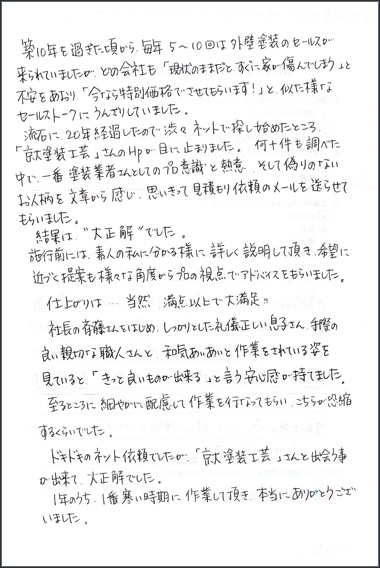 築10年を過ぎた頃から、毎年5～10回は外壁塗装のセールスが
来られていましたが、どの会社も「現状のままだとすぐに家が傷んでしまう」と
不安をあおり、「今なら特別価格でさせてもらいます!」と、似た様な
セールストークにうんざりしていました。
流石に、20年経過したので渋々ネットで探し始めたところ、
「京大塗装工芸」さんのHpが目に止まりました。何十件も調べた
中で、一番塗装業者さんとしてのプロ意識と熱意、そして偽りのない
お人柄を文章から感じ、思いきって見積もり依頼のメールを送らせて
もらいました。
結果は、"大正解"でした。
施行前には、素人の私に分かる様に詳しく説明して頂き、希望に
近づく提案も様々な角度からプロの視点でアドバイスをもらいました。
仕上がりは… 当然 満点以上で大満足!!
社長の斉藤さんをはじめ、しっかりとした礼儀正しい息子さん、手際の
良い親切な職人さんと、和気あいあいと作業をされている姿を
見ていると「きっと良いものが出来る」と言う安心感が持てました。
至るところに細やかに配慮して作業を行なってもらい、こちらが恐縮
するくらいでした。
ドキドキのネット依頼でしたが、「京大塗装工芸」さんと出会う事
が出来て、大正解でした。
1年のうち、1番寒い時期に作業して頂き、本当にありがとうござ
いました。